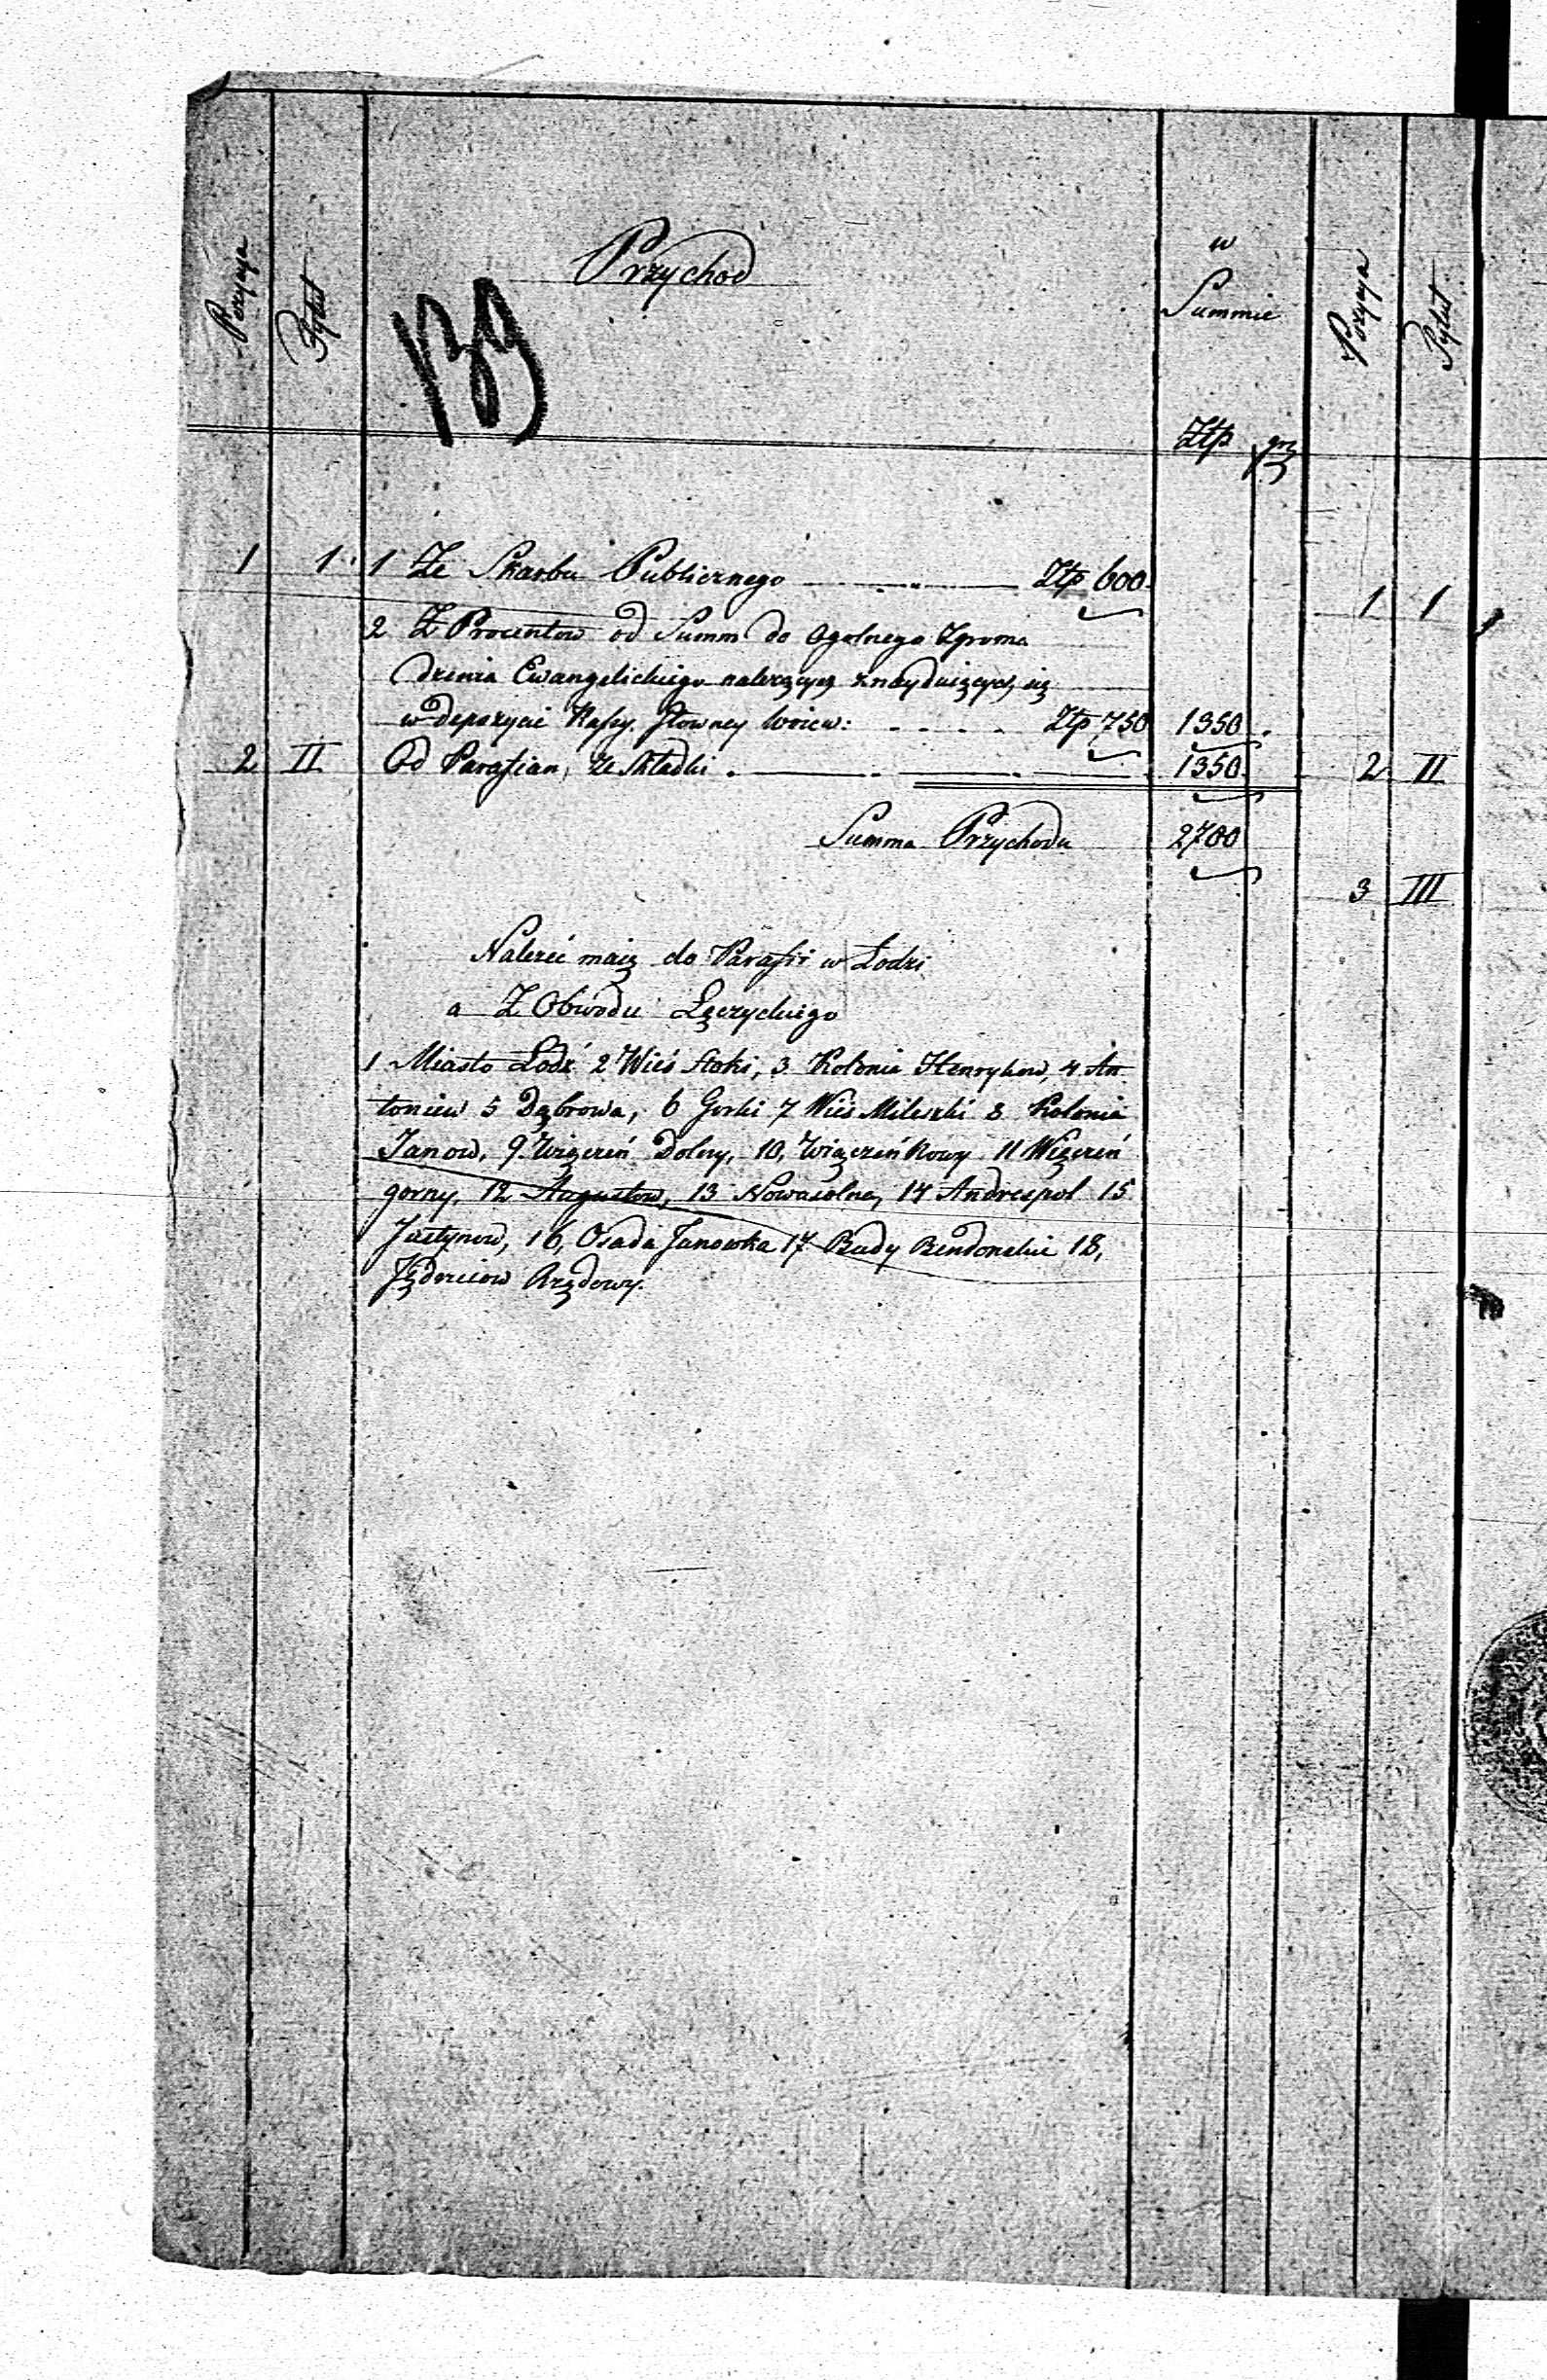 Pozycya
Tytuł
Przychod
w
Summie
Pozycya
Tytuł
139
Ztp gr
1 1 1 Ze Skarbu Publicznego Ztp 600
1 1
2 Z Procentow od Summ do Ogolnego Zgroma
dzenia Ewangelickiego należących znayduiących się
w depozycie Kassy Głowney Woiew: Ztp 750 1350
2 II Od Parafian, ze Składki 1350
2 II
Summa Przychodu 2700
3 III
Należeć maią do Parafii w Łodzi
a Z Obwodu Łęczyckiego
1 Miasto Łodź 2 Wieś Stoki, 3 Kolonia Henrykow, 4 An
toniew 5 Dąbrowa, 6 Gorki 7 Wieś Mileszki 8 Kolonia
Janow, 9 Wiączeń Dolny, 10, Wiączeń Nowy 11 Wiączeń
gorny, 12 Augustow, 13 Nowasolna, 14 Andrespol 15
Justynow, 16, Osada Janowka 17 Budy Bendonskie 18,
Jędrzeiow Rządowy.